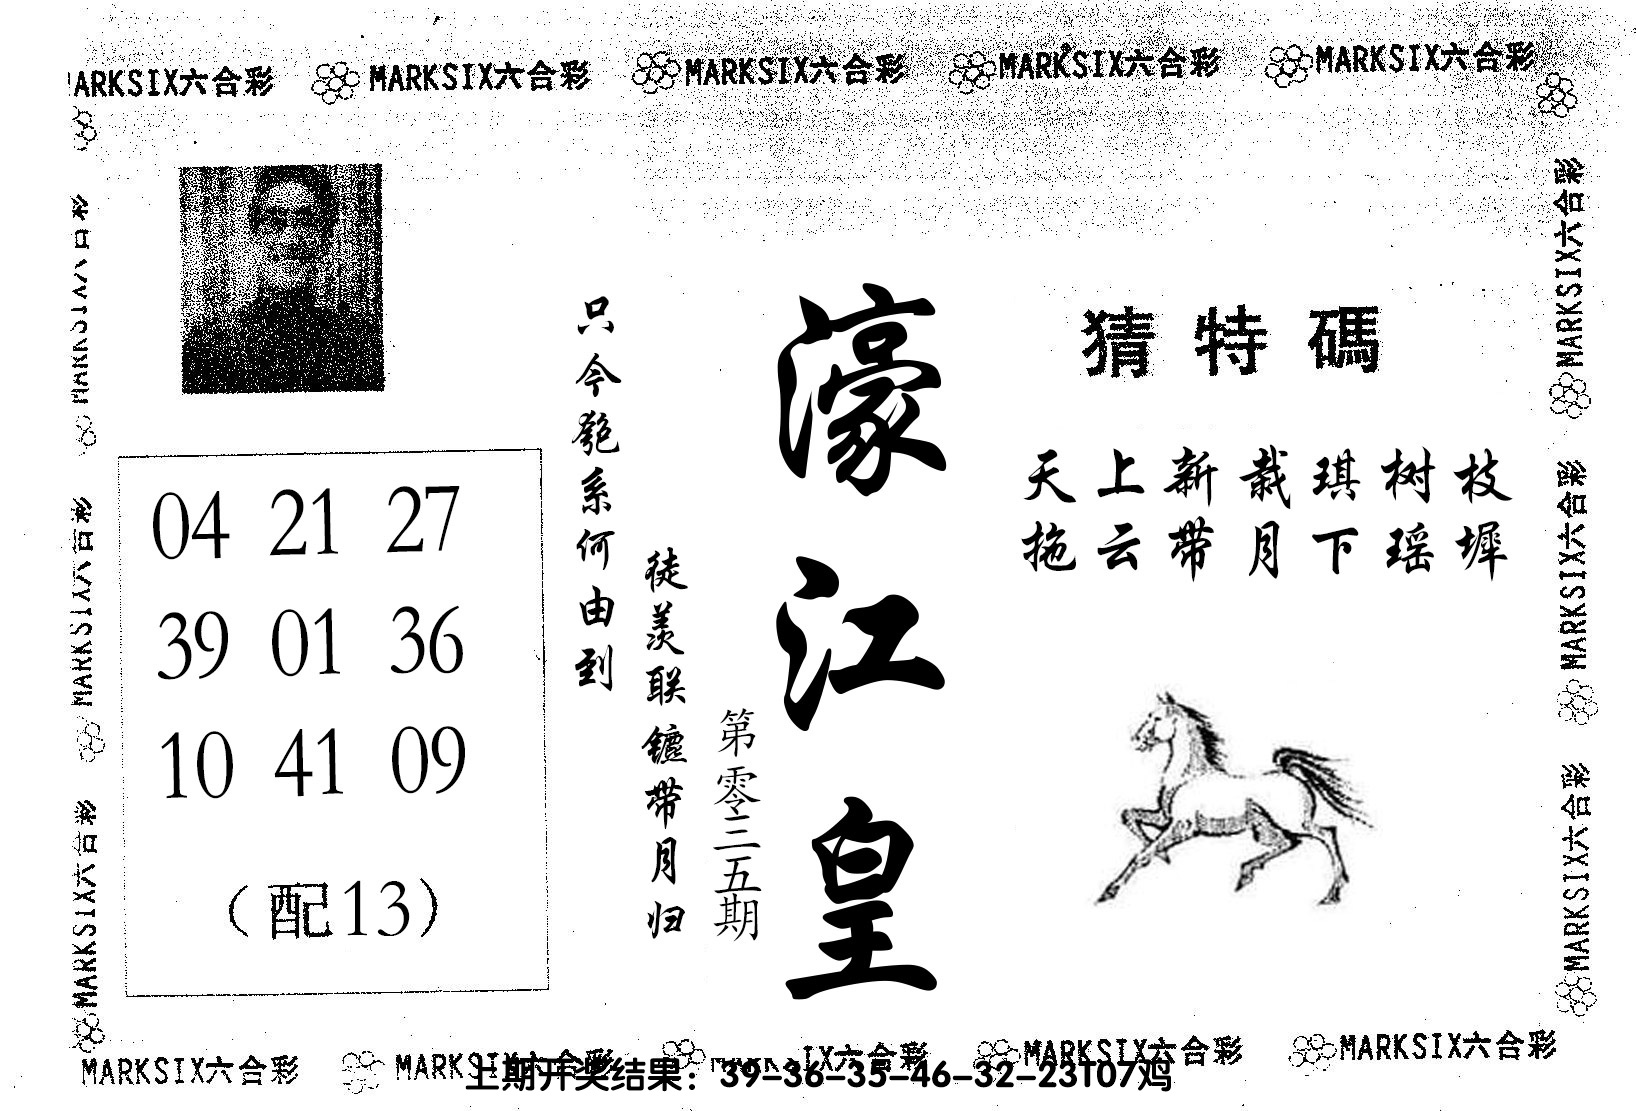 MARKSIX六合彩 MARKSIX六合彩 MARKSIX六合彩 MARKSIX六合彩 MARKSIX六合彩
猜特碼
天上新栽琪树枝
拖云带月下瑶墀
濠江皇
第零三五期
只今匏系何由到
徒羡联镳带月归
04 21 27
39 01 36
10 41 09
（配13）
MARKSIX六合彩
MARKSIX六合彩
MARKSIX六合彩
MARKSIX六合彩
MARKSIX六合彩
MARKSIX六合彩
MARKSIX六合彩 MARKSIX六合彩 IX六合彩 MARKSIX六合彩 MARKSIX六合彩
上期开奖结果：39-36-35-46-32-23T07鸡